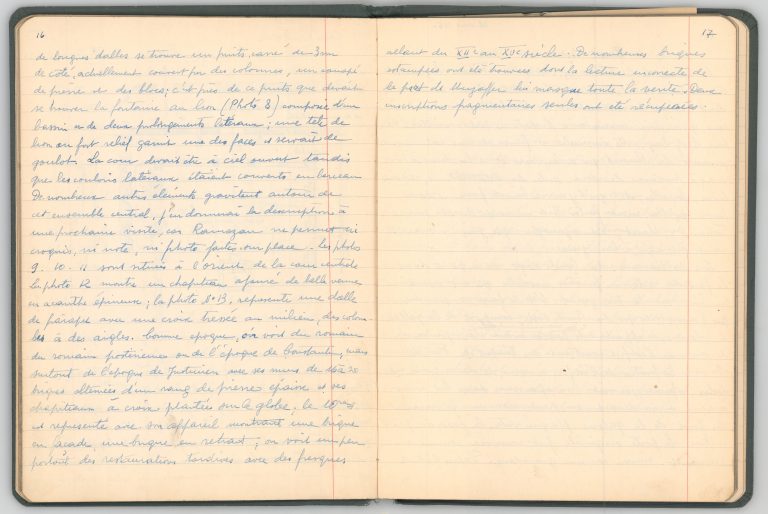 16
de longues dalles se trouve un puits carré de 3 m
de côté, actuellement couvert par des colonnes, un canapé
de pierre et des blocs; c'est près de ce puits que devait
se trouver la fontaine au lion (Photo 8) composée d'un
bassin et de deux prolongements latéraux; une tête de
lion au fort relief garnit une des faces et servait de
goulot. La cour devait être à ciel ouvert tandis
que les couloirs latéraux étaient couverts en berceau
De nombreux autres éléments gravitent autour de
cet ensemble central, j'en donnerai la description à
une prochaine visite, car Ramazan ne permet ni
croquis, ni note, ni photo faites sur place. Les photos
9. 10. 11 sont situées à l'orient de la cour centrale
La photo 12 montre un chapiteau ajouré de belle venue
en acanthe épineux; la photo N° 13, représente une dalle
de parapet avec une croix tressée au milieu, des colom-
bes à des aigles. Comme époque, on voit du romain
du romain postérieur ou de l'époque de Constantin, mais
surtout de l'époque de Justinien avec ses murs de
briques alternées d'un rang de pierres épaisse et ses
chapiteaux à croix plantées sur le globe, le
est représenté avec son appareil montrant une brique
en façade, une brique en retrait; on voit un peu
partout des restaurations tardives avec des fresques
17
allant du XIIe au XVe siècle. De nombreuses briques
estampées ont été trouvées dont la lecture incorrecte de
la part de Muzaffer lui masque toute la vérité. Deux
inscriptions fragmentaires seules ont été récupérées.